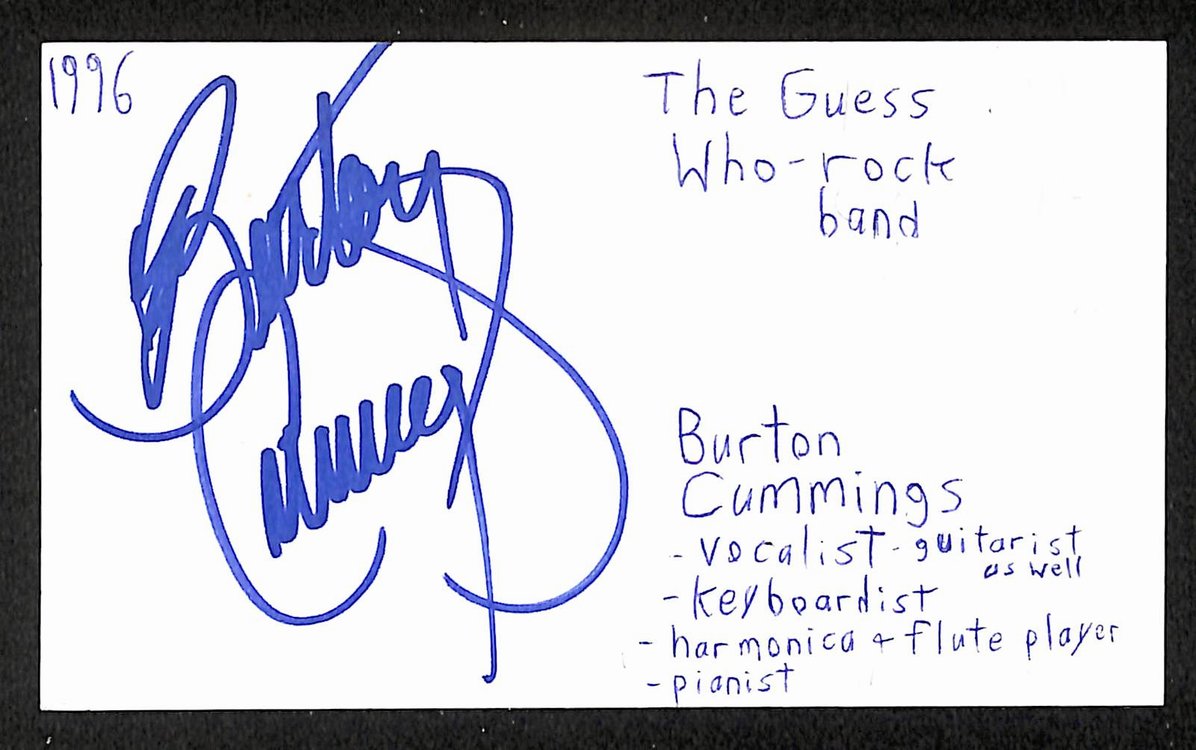 1996
Burton
Cummings
The Guess
Who-rock
band
Burton
Cummings
- vocalist - guitarist
as well
- keyboardist
- harmonica + flute player
- pianist